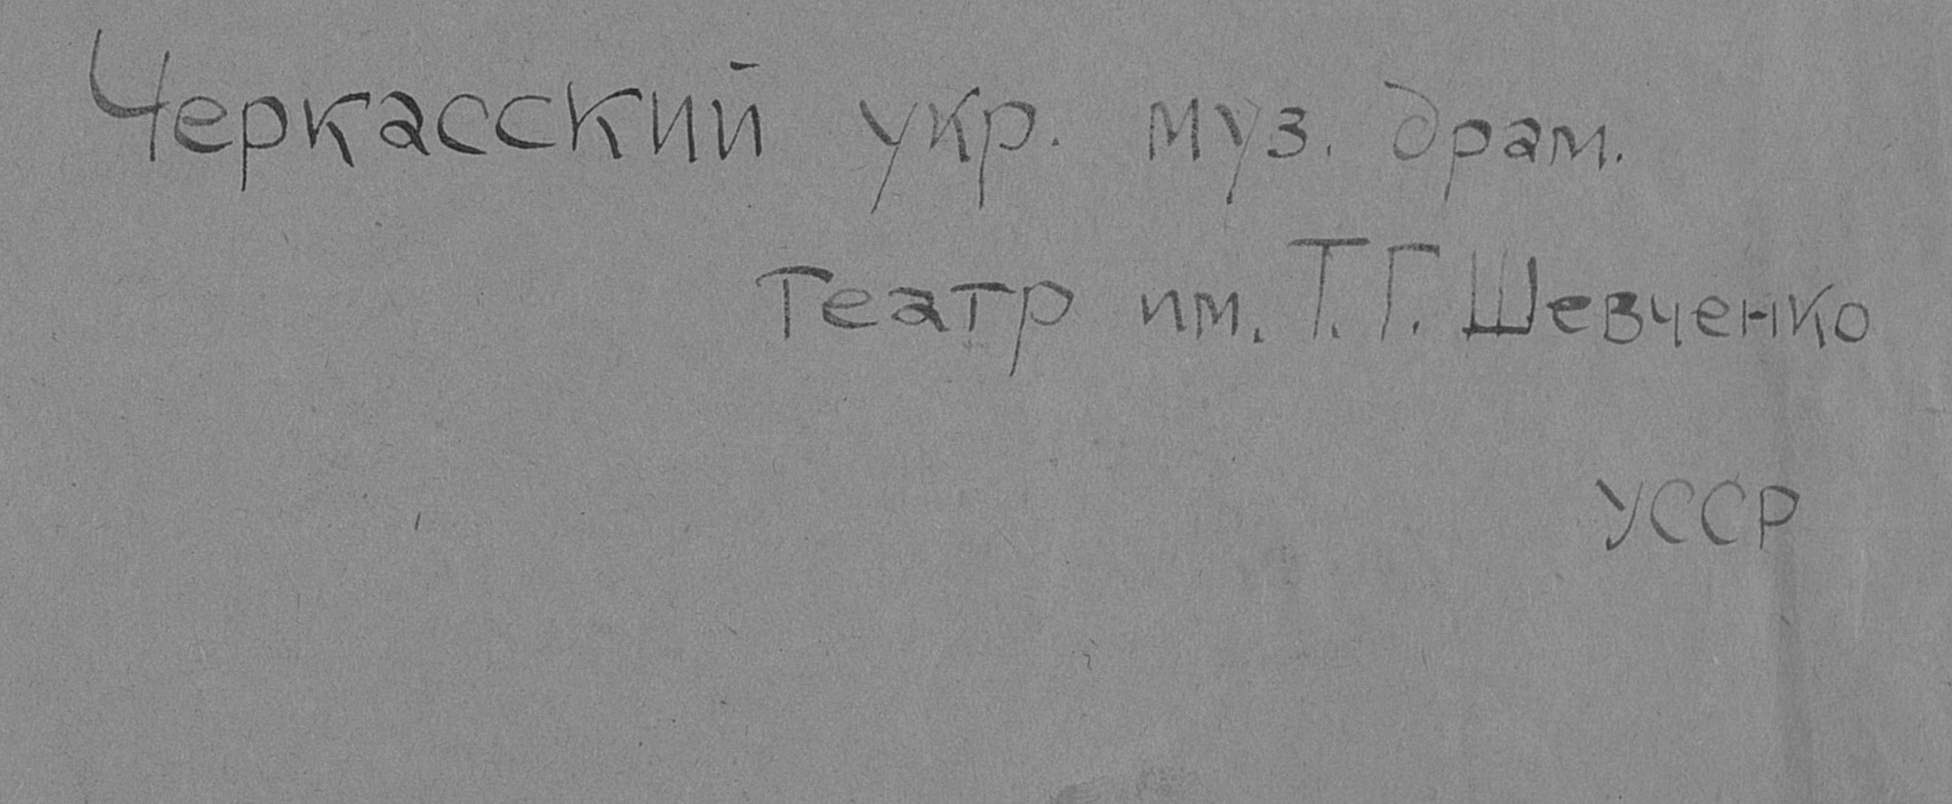 Черкасский укр. муз. драм.
Театр им. Т.Г. Шевченко
УССР